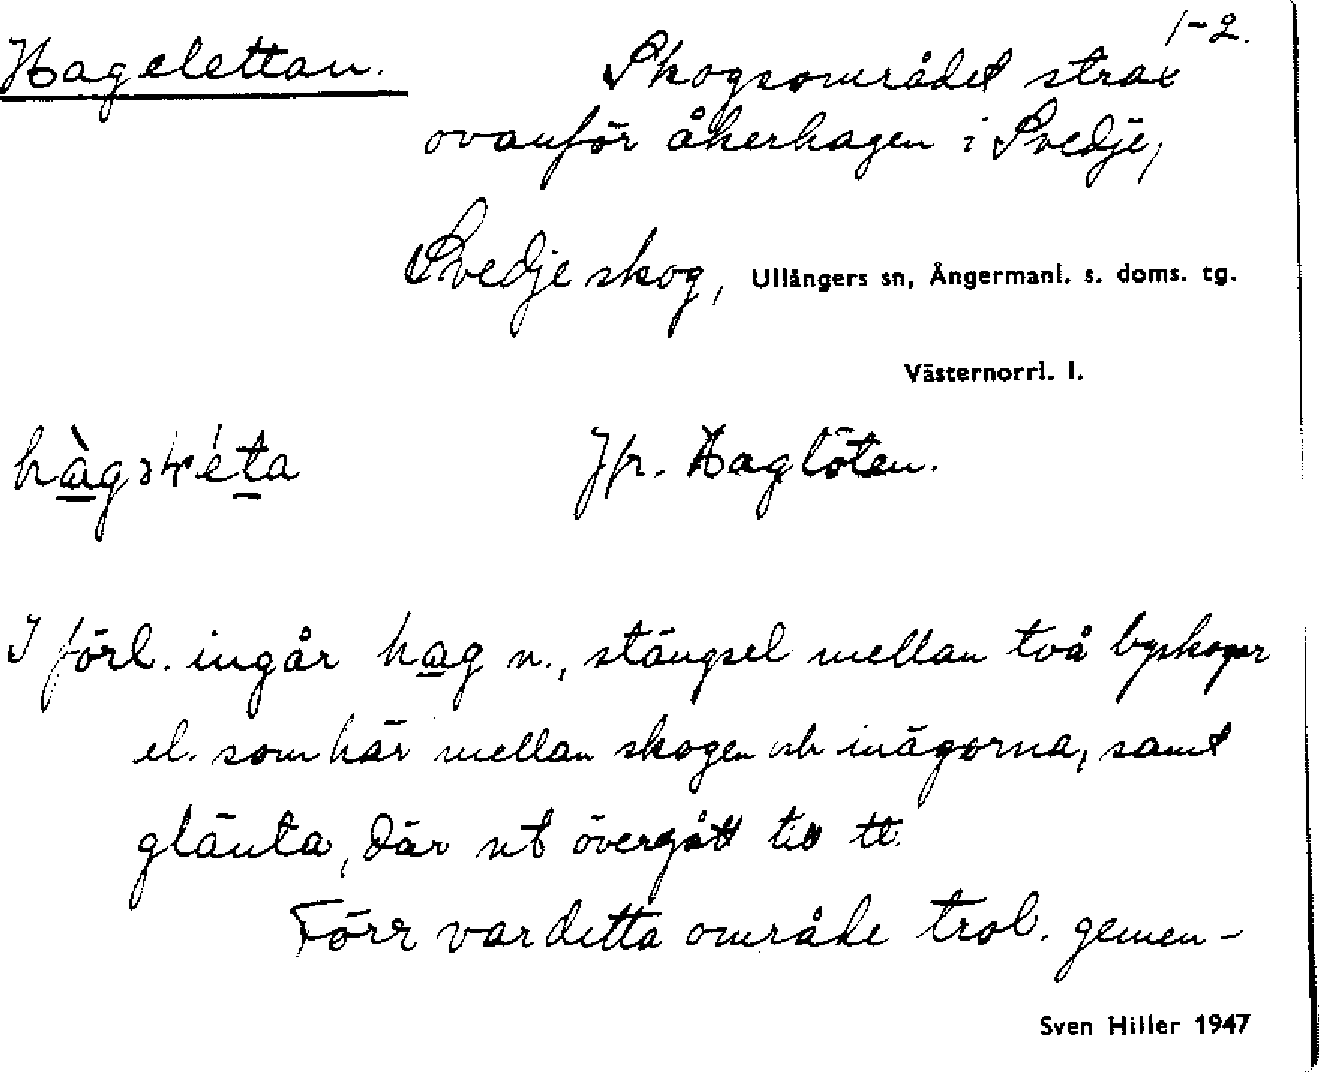 1-2.
Hagelettan. Skogsområdet strax
ovanför åkerhagen i Svedje,
Svedje skog, Ullångers sn, Ångermanl. s. doms. tg.
Västernorrl. l.
Jfr. Haglöten.
I förl. ingår hag n., stängsel mellan två byskogar
el. som här mellan skogen och inägorna, samt
glänta, där nt övergått till tt.
Förr var detta område trol. gemen-
Sven Hiller 1947